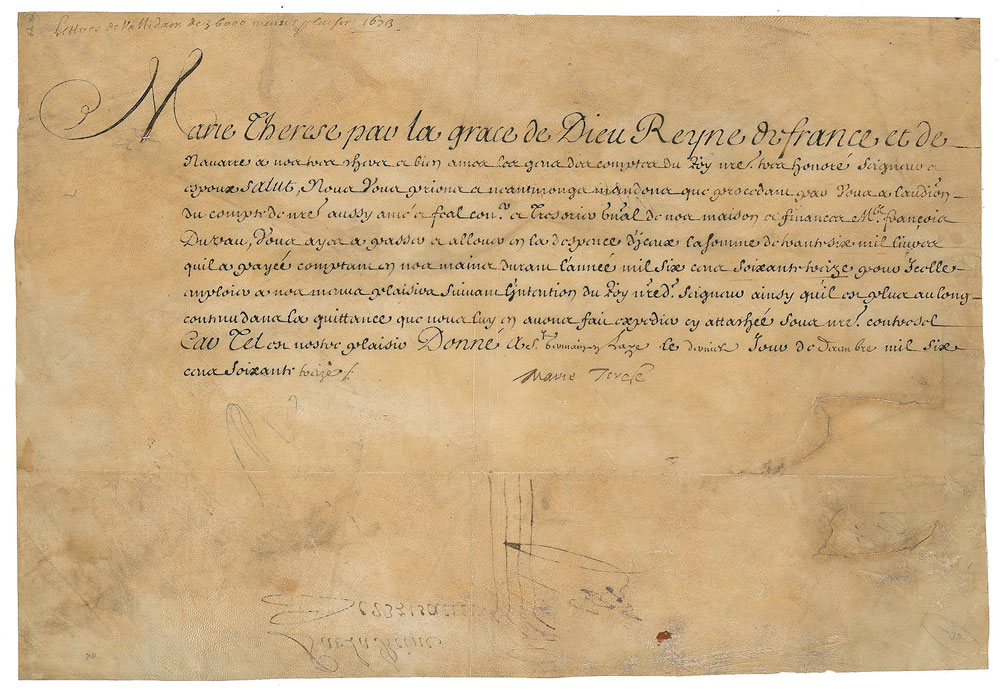 Lettres de Validaon de 36000 menus plaisirs 1673
Marie Therese par la grace de Dieu Reyne de france et de
Navarre a nos tres chers et bien amez les gens des comptes du Roy nre. tres honoré Seigneur et
espoux Salut, Nous Vous prions et neantmoings mandons que procedant par Vous a laudion
du compte de nre. aussy amé et feal conr. et Tresorier gnal de nos maison et finances Me. françois
Vous ayez a passer et allouer en la despence d'jceux la somme de trante six mil livres
quil a payée comptant en nos mains durant l'année mil six cens soixante treize pour Jcelle
emploier a nos menus plaisirs suivant l'jntention du Roy nred. Seigneur ainsy quil est plus au long
contenu dans la quittance que nous luy en avons fait expedier cy attachée sous nre. contrescel
Car Tel est nostre plaisir Donné A St. Germain en Laye le dernier Jour de Decembre mil six
cens soixante treize /.
Marie Terese
Par la Reine